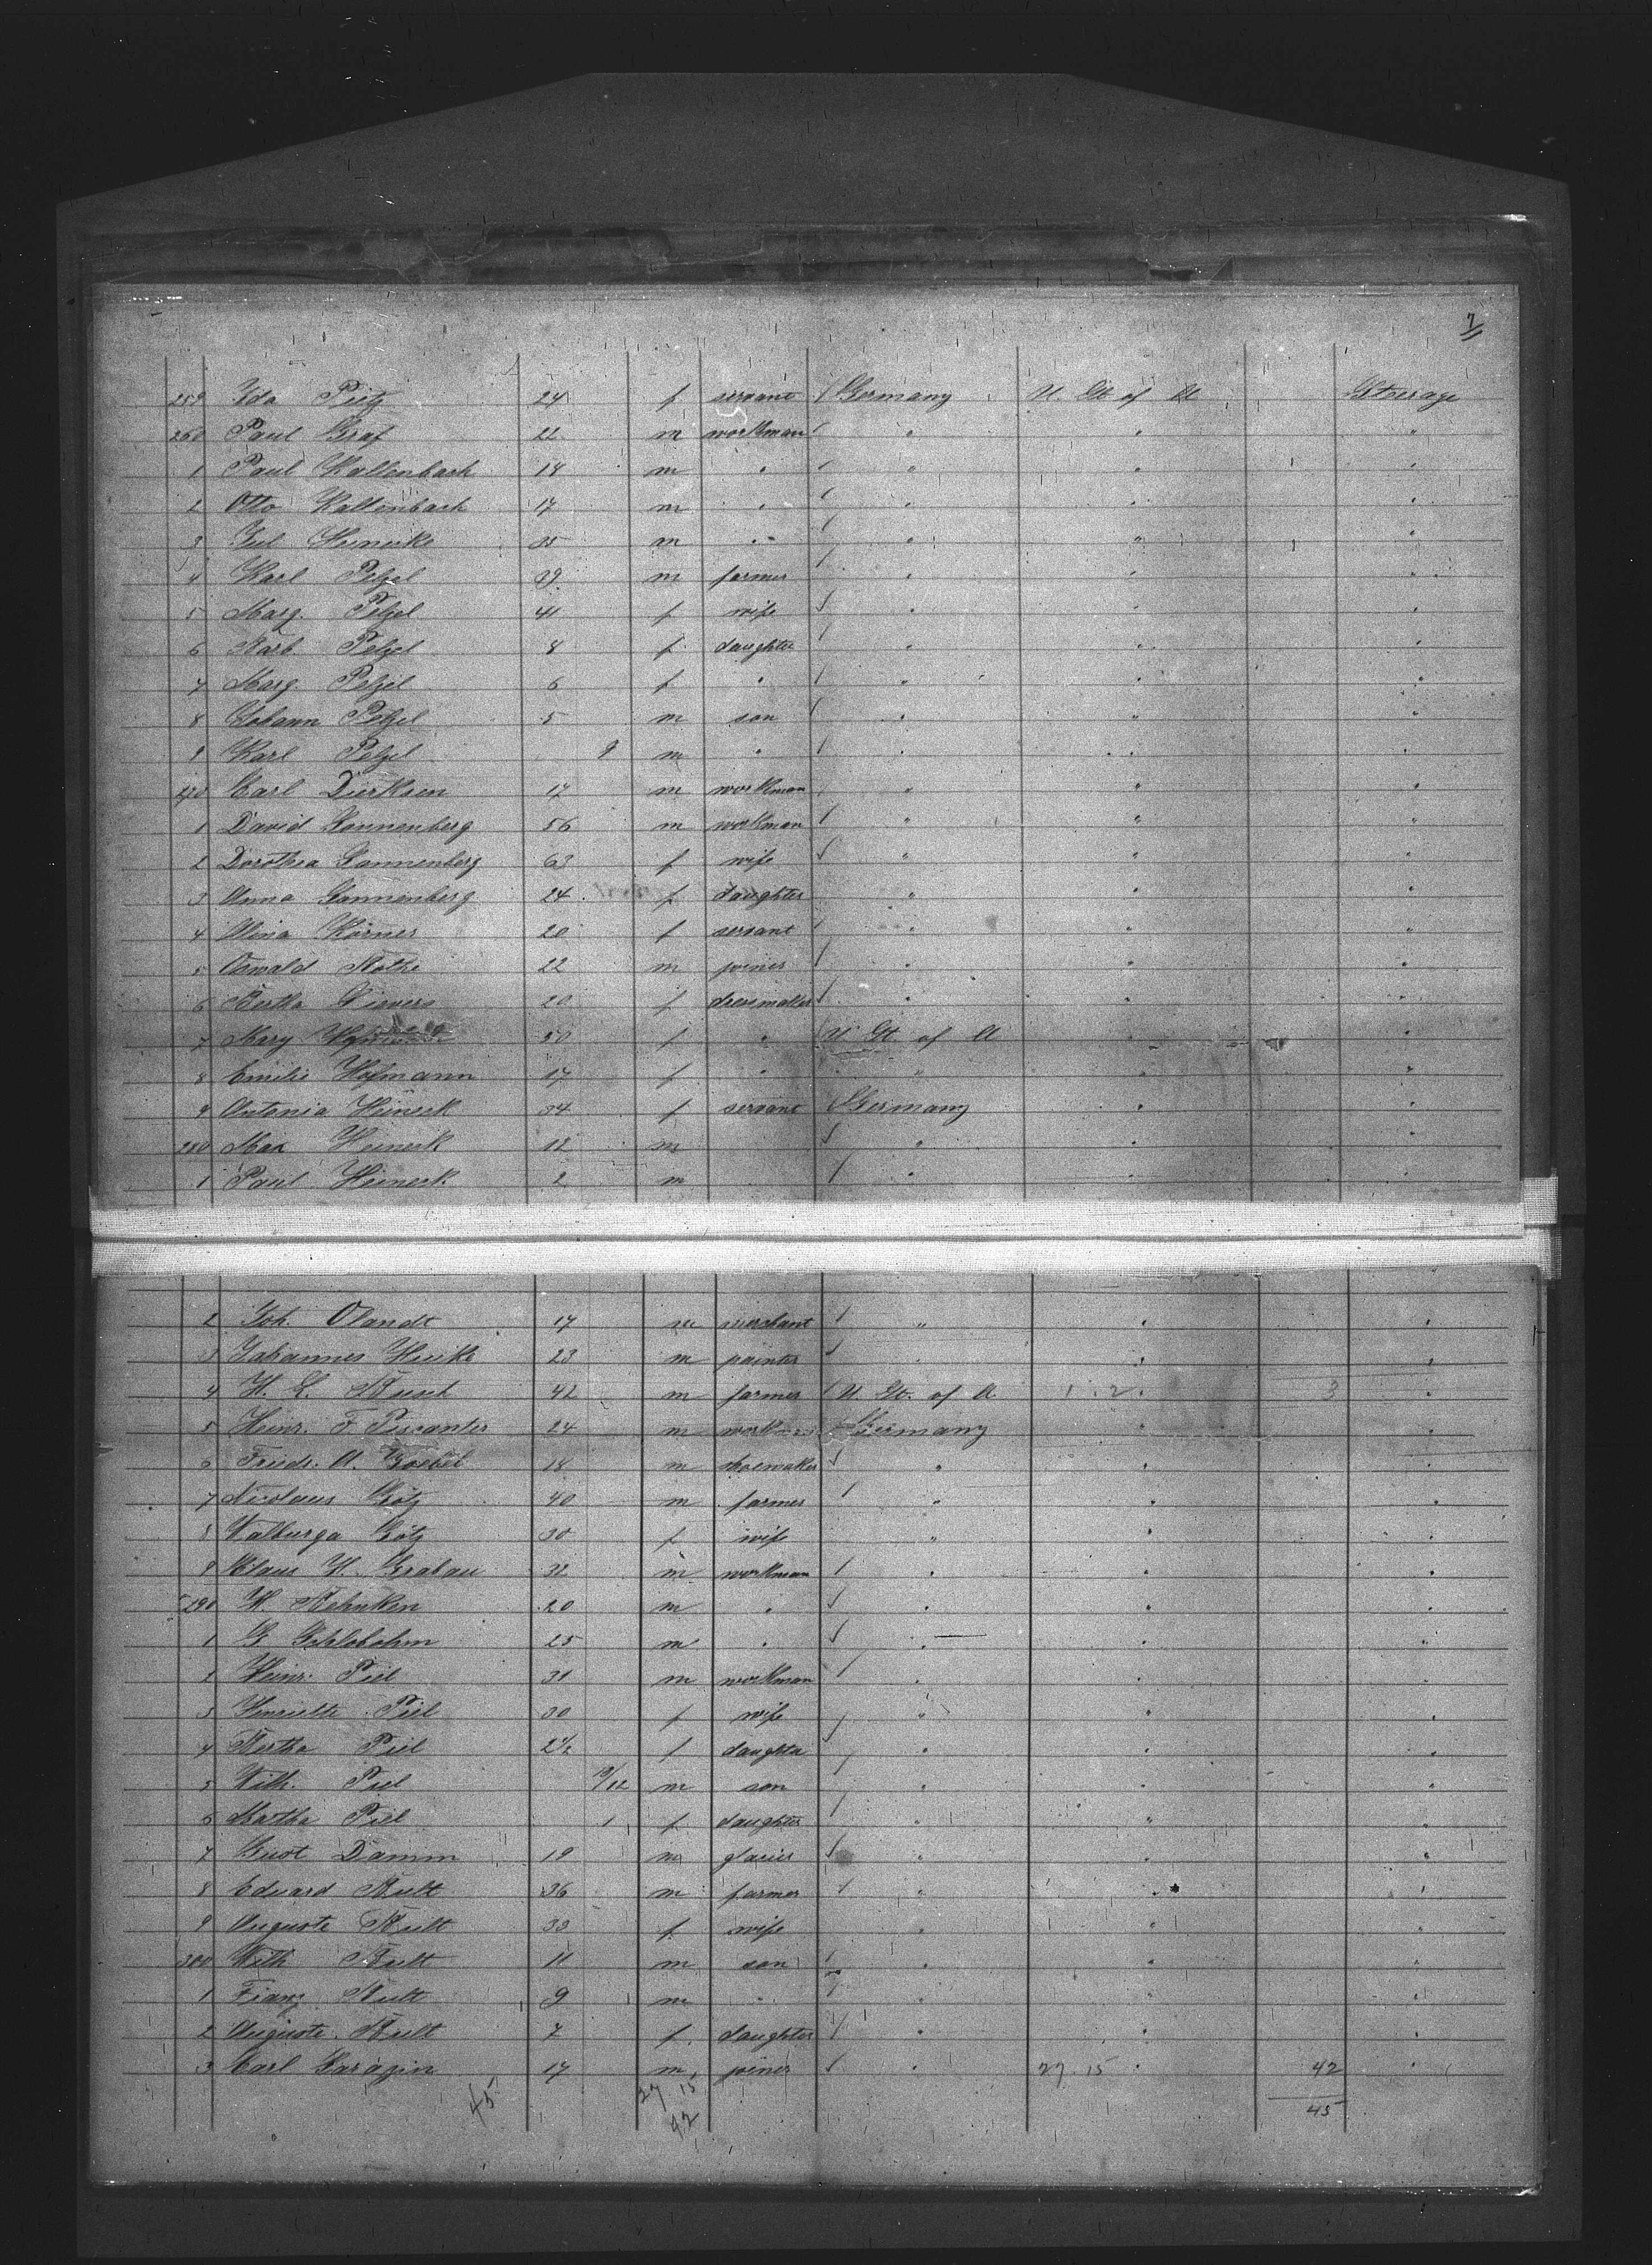 7
259 Ida Pietz 24 f servant Germany U. St. of A Steerage
260 Paul Graf 22 m workman " " "
1 Paul Kallenbach 18 m " " " "
2 Otto Kallenbach 17 m " " " "
3 Jul Heinecke 35 m " " " "
4 Karl Pelzel 39 m farmer " " "
5 Marg. Pelzel 41 f wife " " "
6 Barb. Pelzel 8 f daughter " " "
7 Marg. Pelzel 6 f " " " "
8 Johann Pelzel 5 m son " " "
9 Karl Pelzel 9 m " " " "
270 Carl Dierksen 17 m workman " " "
1 David Sonnenberg 56 m workman " " "
2 Dorothea Sonnenberg 63 f wife " " "
3 Anna Sonnenberg 24 f daughter " " "
4 Mina Körner 20 f servant " " "
5 Oswald Rothe 22 m joiner " " "
6 Bertha Sievers 20 f dressmaker " " "
7 Mary 50 f " U. St. of A " "
8 Emilie Hofmann 17 f " " " "
9 Antonia Heineck 34 f servant Germany " "
280 Max Heineck 12 m " " "
1 Paul Heineck 2 m " " "
2 Joh. Olandt 17 m merchant " " "
3 Johannes Huike 23 m painter " " "
4 H. L. Busch 42 m farmer U. St. of A 1. 2. 3 "
5 Heinr. F. Piscanter 24 m workman Germany " "
6 Friedr. A. Goebel 18 m shoemaker " " "
7 Nicolaus Götz 40 m farmer " " "
8 Walburga Götz 30 f wife " " "
9 Claus H. Grabau 32 m workman " " "
290 H. Behnken 20 m " " " "
1 G. Schlobohm 25 m " " " "
2 Heinr. Piel 31 m workman " " "
3 Henriette Piel 30 f wife " " "
4 Bertha Piel 2½ f daughter " " "
5 Wilh. Piel 10/12 m son " " "
6 Martha Piel 1 f daughter " " "
7 Gust Damm 19 m glacier " " "
8 Eduard Bult 36 m farmer " " "
9 Auguste Bult 33 f wife " " "
300 Wilh Bult 11 m son " " "
1 Franz Bult 9 m " " " "
2 Auguste Bult 7 f daughter " " "
3 Carl Sarazin 17 m joiner " 27. 15 " 42 "
45 27 15 42 45